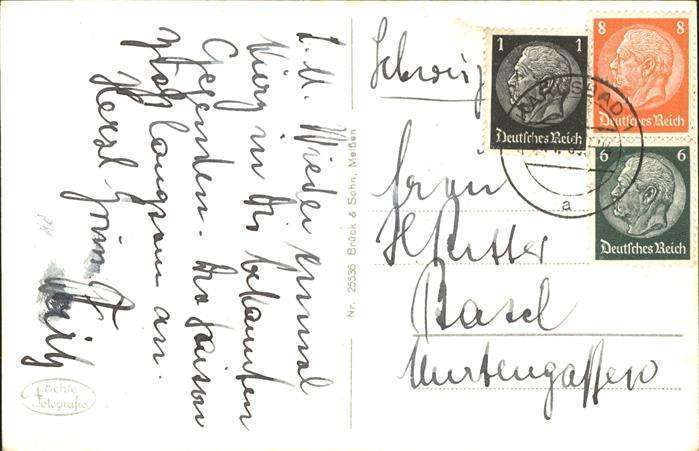 L. M. Wieder einmal
kurz in der bekannten
Gegenden. Die Saison
langsam an.
Herzl. Grüsse
Fritz
Echte
Fotografie
Nr. 25536 Brück & Sohn, Meißen
Schweiz
1 1
Deutsches Reich
8 8
Deutsches Reich
6 6
Deutsches Reich
KARLSBAD
a
Frau
H Ritter
Basel